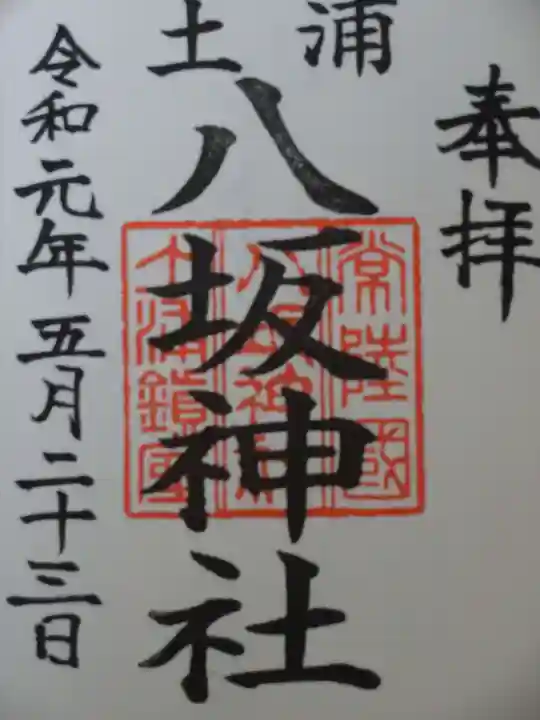 奉拝
土浦
八坂神社
令和元年五月二十三日
常陸國
八坂神社
土浦鎮座